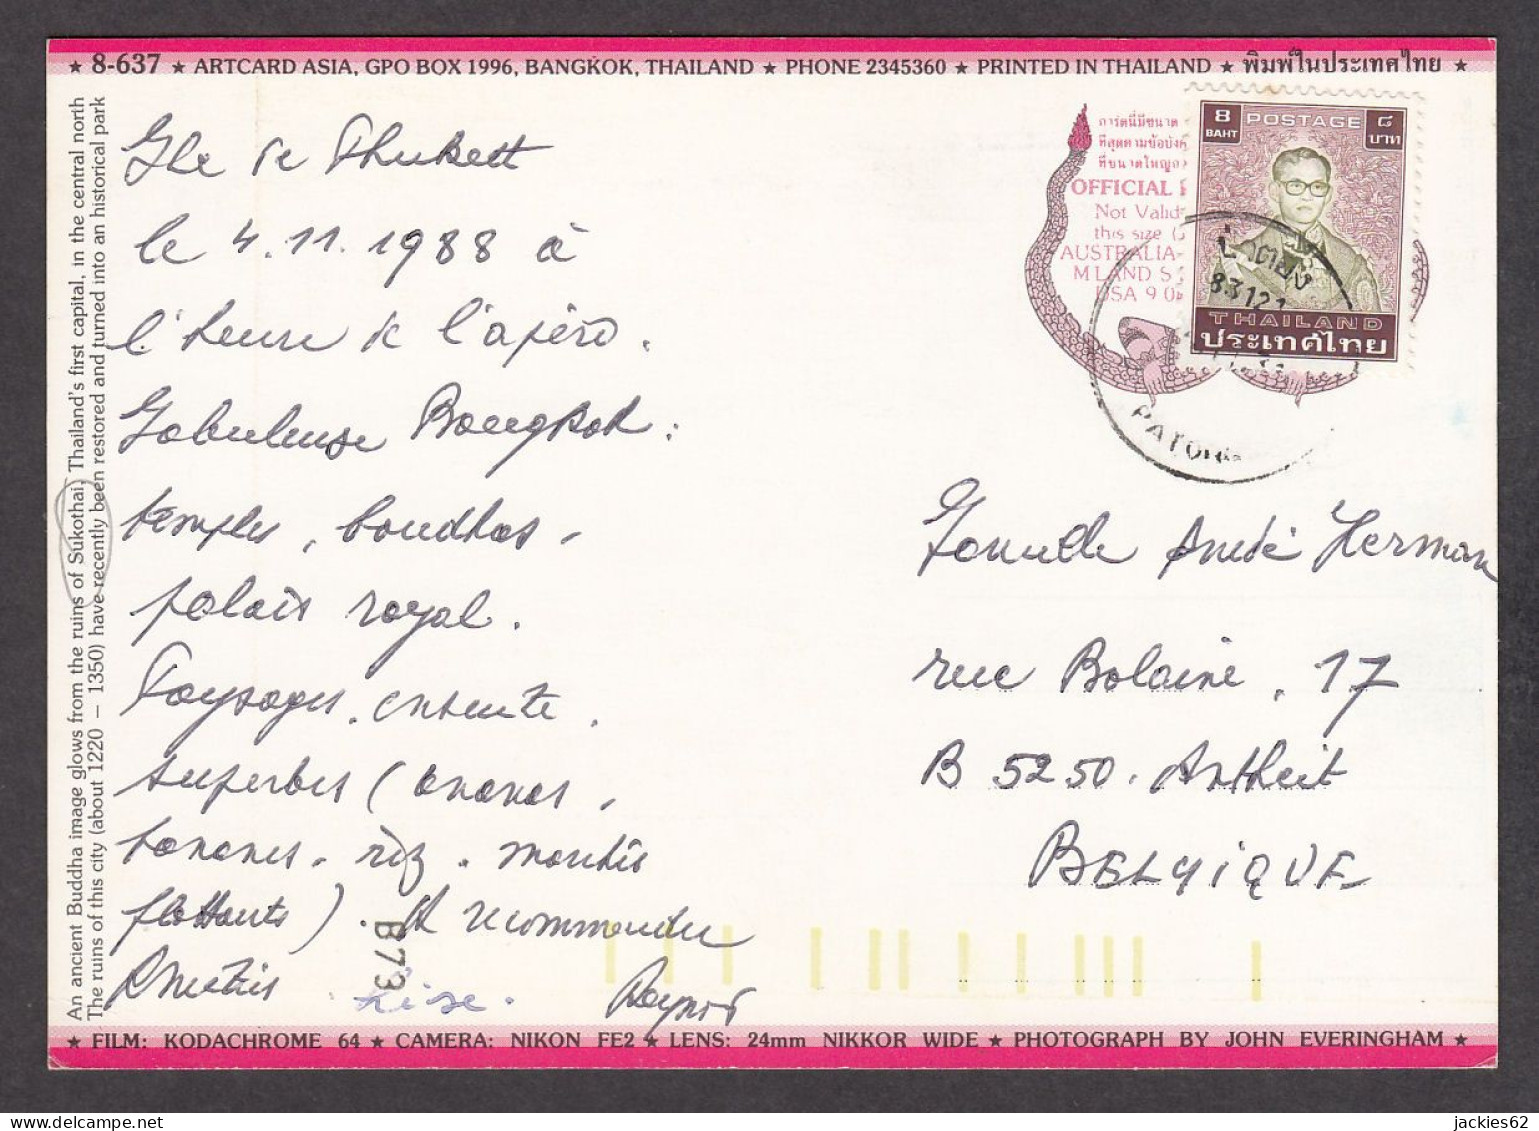 ★ 8-637 ★ ARTCARD ASIA, GPO BOX 1996, BANGKOK, THAILAND ★ PHONE 2345360 ★ PRINTED IN THAILAND ★ พิมพ์ในประเทศไทย ★
An ancient Buddha image glows from the ruins of Sukothai, Thailand's first capital, in the central north
The ruins of this city (about 1220 – 1350) have recently been restored and turned into an historical park
Ile de Phukett
le 4.11.1988 à
l'heure de l'apéro.
Fabuleuse Bangkok :
temples, bouddhas,
palais royal.
Paysages, ensuite,
superbes (ananas,
bananes, riz, marchés
flottants). A recommander
Amitiés
Lise.
B73
การ์ดนี้มีขนาด
ที่สุดตามข้อบังคั
ที่ขนาดใหญ่กว
OFFICIAL
Not Valid
this size
AUSTRALIA
USA 9 0
8 BAHT POSTAGE ๘ บาท
THAILAND
ประเทศไทย
ป่าตอง
83121
PATONG
Famille André Herman
rue Bolaine, 17
B 5250. Antheit
BELGIQUE
★ FILM: KODACHROME 64 ★ CAMERA: NIKON FE2 ★ LENS: 24mm NIKKOR WIDE ★ PHOTOGRAPH BY JOHN EVERINGHAM ★
jackies62